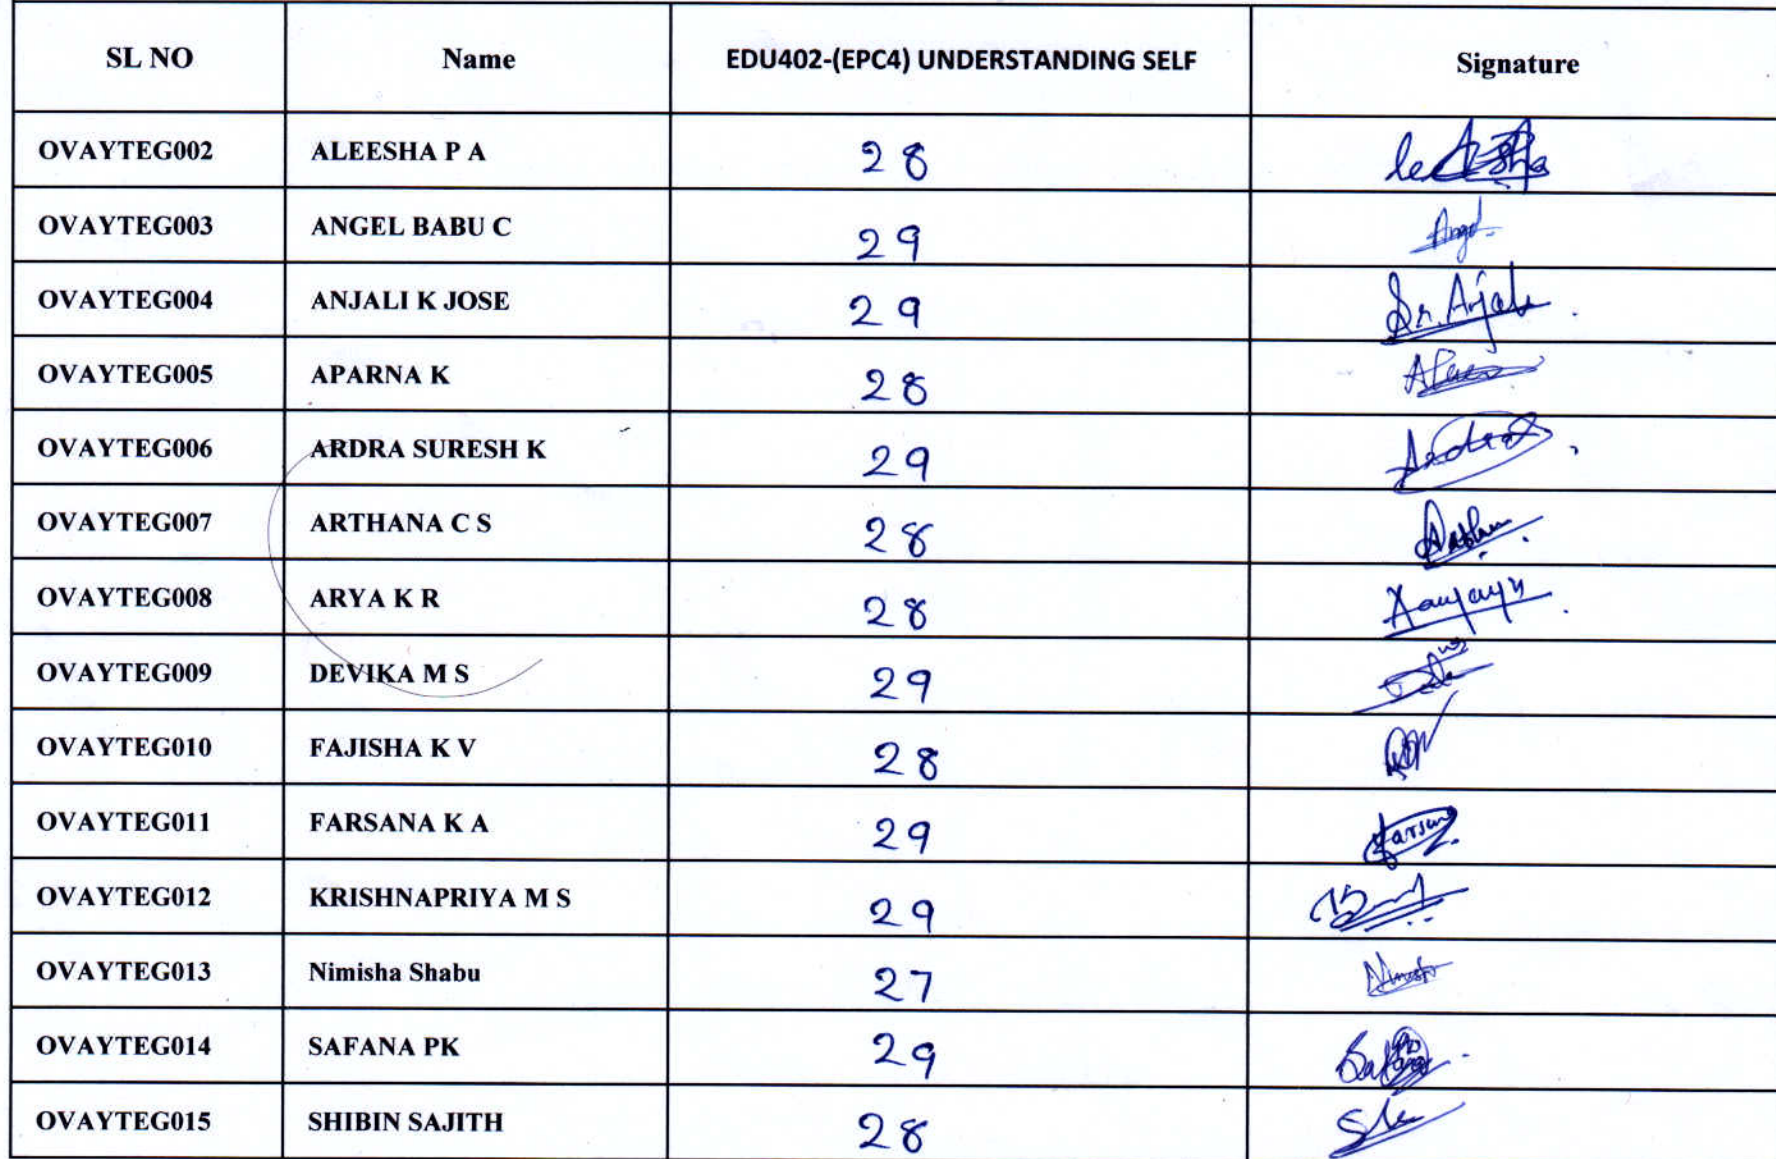 SL NO Name EDU402-(EPC4) UNDERSTANDING SELF Signature
OVAYTEG002 ALEESHA P A 28
OVAYTEG003 ANGEL BABU C 29 Angel
OVAYTEG004 ANJALI K JOSE 29 Sr. Anjali
OVAYTEG005 APARNA K 28
OVAYTEG006 ARDRA SURESH K 29 Ardra
OVAYTEG007 ARTHANA C S 28
OVAYTEG008 ARYA K R 28
OVAYTEG009 DEVIKA M S 29
OVAYTEG010 FAJISHA K V 28
OVAYTEG011 FARSANA K A 29 Farsana
OVAYTEG012 KRISHNAPRIYA M S 29
OVAYTEG013 Nimisha Shabu 27
OVAYTEG014 SAFANA PK 29
OVAYTEG015 SHIBIN SAJITH 28